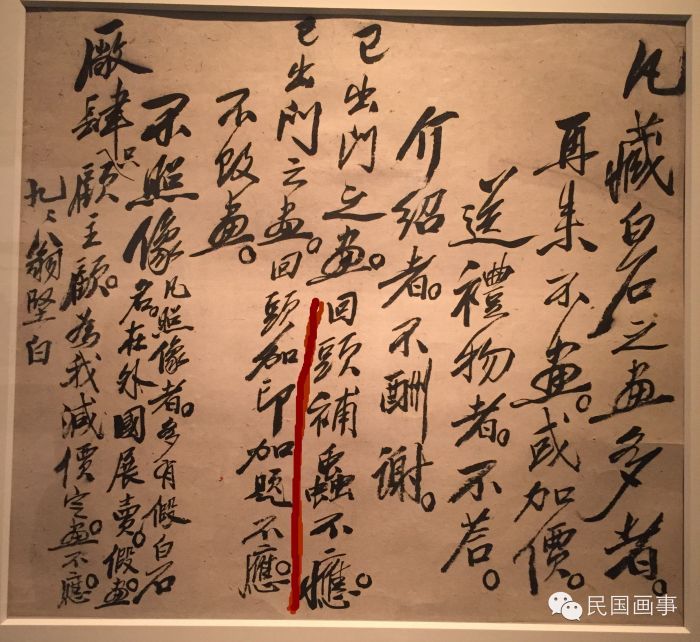 凡藏白石之畫多者。
再来不畫。或加價。
送禮物者。不荅。
介紹者。不酬謝。
已出門之畫。回頭補蟲不應。
已出門之畫。回頭加印加題不應。
不改畫。
不照像。凡照像者。多有假白石
名。在外國展賣。假畫。
廠肆只顧主顧。為我減價定畫不應。
八翁堅白
民国画事